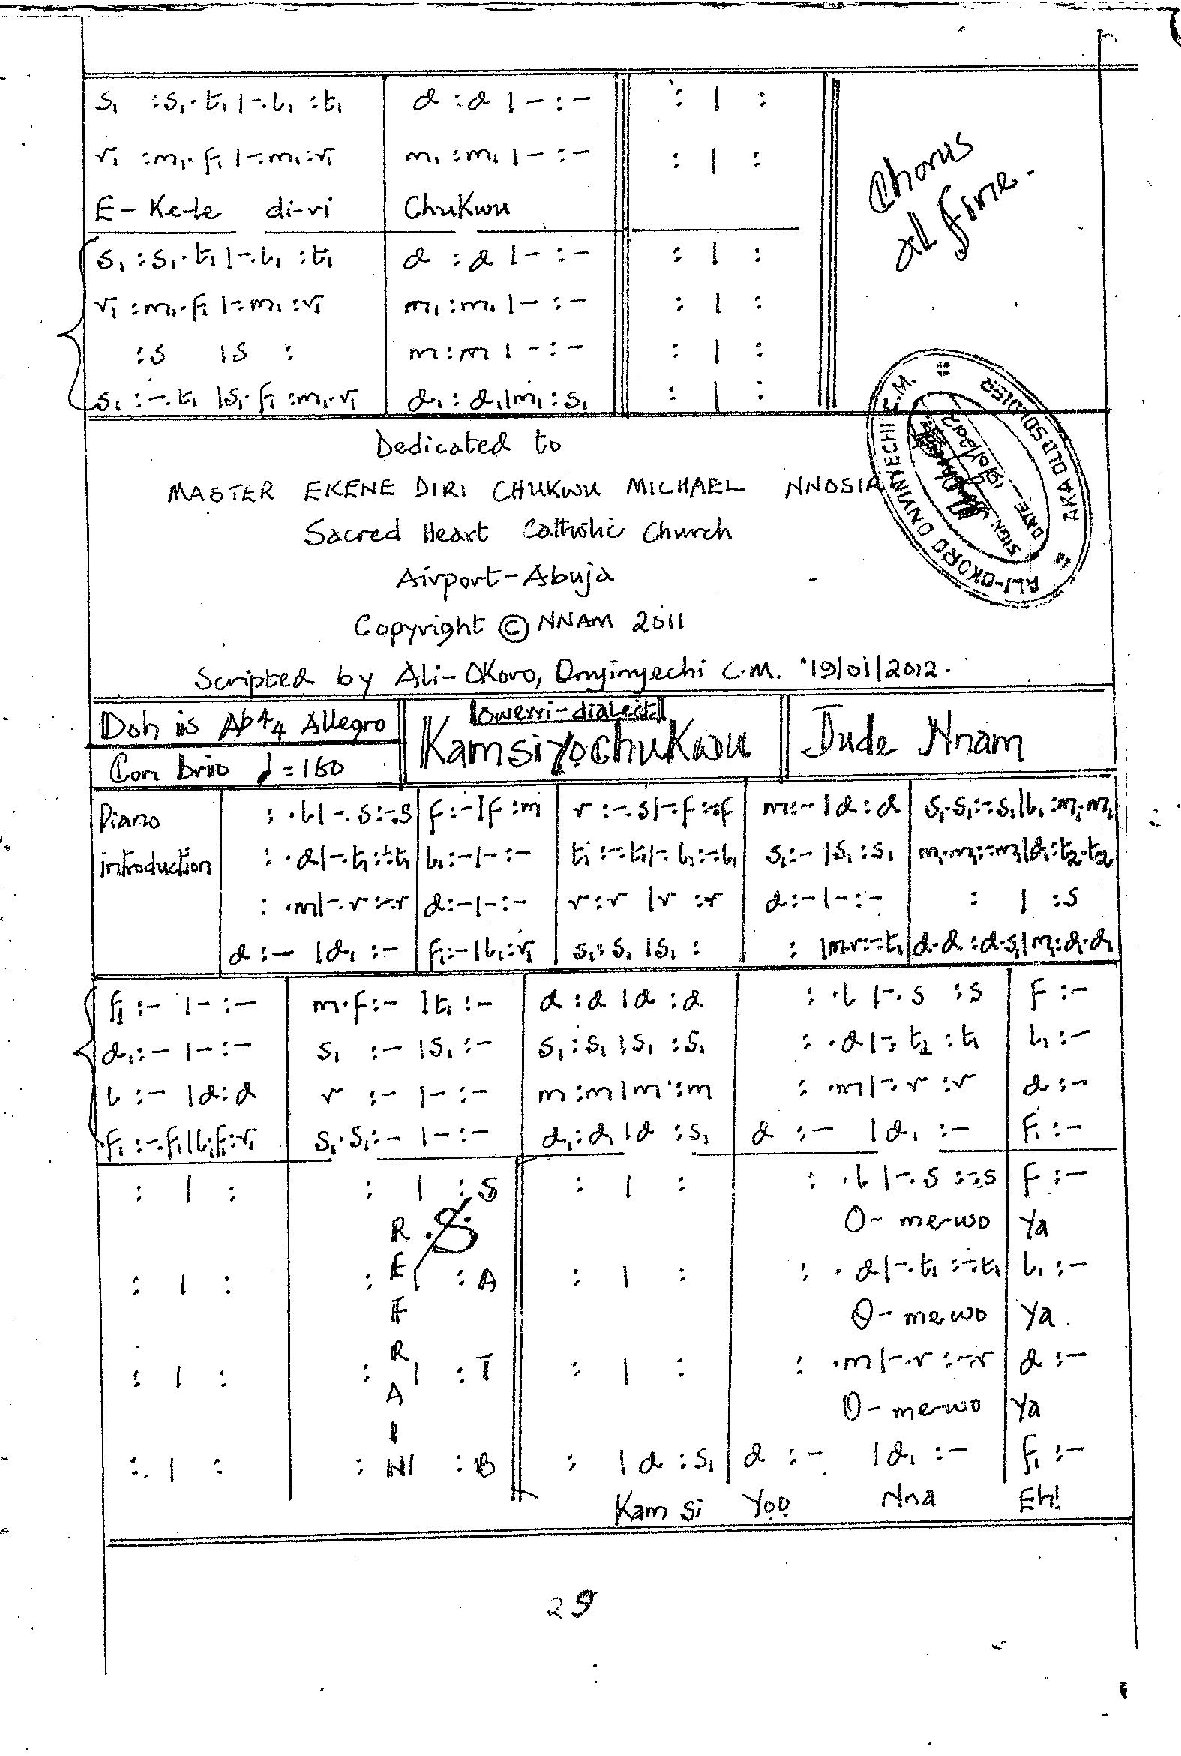 s₁ :s₁.t₁ |-.l₁ :t₁ d :d |- :- : | :
r₁ :m₁.f₁ |-.m₁ :r₁ m₁ :m₁ |- :- : | :
Chorus
al fine.
E-Ke-le di-vi ChuKwu
s₁ :s₁.t₁ |-.l₁ :t₁ d :d |- :- : | :
r₁ :m₁.f₁ |-.m₁ :r₁ m₁ :m₁ |- :- : | :
:s |s : m :m |- :- : | :
s₁ :-.t₁ |s₁.f₁ :m₁.r₁ d₁ :d₁ |m₁ :s₁ : | :
Dedicated to
MASTER EKENE DIRI CHUKWU MICHAEL NNOSIA
Sacred Heart Catholic Church
Airport-Abuja
Copyright © NNAM 2011
Scripted by Ali-Okoro, Onyinyechi C.M. 19/01/2012.
ALI-OKORO ONYINYECHI C.M.
AKA OLD SOLDIER
SIGN
DATE
Doh is Ab 4/4 Allegro
Con brio ♩=160
Owerri-dialect
KamsiyọchuKwu
Jude Nnam
Piano : .l |-.s :-.s f :- |f :m r :-.s |-.f :-.f m :- |d :d s₁.s₁ :-.s₁ |l₁ :m₁.m₁
introduction : .d |-.t₁ :-.t₁ l₁ :- |- :- t₁ :-.t₁ |-.l₁ :-.l₁ s₁ :- |s₁ :s₁ m₁.m₁ :-.m₁ |d₁ :t₂.t₂
: .m |-.r :-.r d :- |- :- r :r |r :r d :- |- :- : | :s
d :- |d₁ :- f₁ :- |l₁ :r₁ s₁ :s₁ |s₁ : : |m.r :-.t₁ d.d :d.s₁ |m₁ :d₁.d₁
f₁ :- |- :- m.f :- |t₁ :- d :d |d :d : .l |-.s :s f :-
d₁ :- |- :- s₁ :- |s₁ :- s₁ :s₁ |s₁ :s₁ : .d |-.t₂ :t₁ l₁ :-
l₁ :- |d :d r :- |- :- m :m |m :m : .m |-.r :r d :-
f₁ :-.f₁ |l₁.f₁ :r₁ s₁.s₁ :- |- :- d₁ :d₁ |d :s₁ d :- |d₁ :- f₁ :-
: | : : | :S : | : : .l |-.s :-.s f :-
REFRAIN
O-merwo Ya
: | : : | :A : | : : .d |-.t₁ :-.t₁ l₁ :-
O-merwo Ya.
: | : : | :T : | : : .m |-.r :-.r d :-
O-merwo Ya
: | : : | :B : |d :s₁ d :- |d₁ :- f₁ :-
Kam si Yọọ Nna Eh!
29